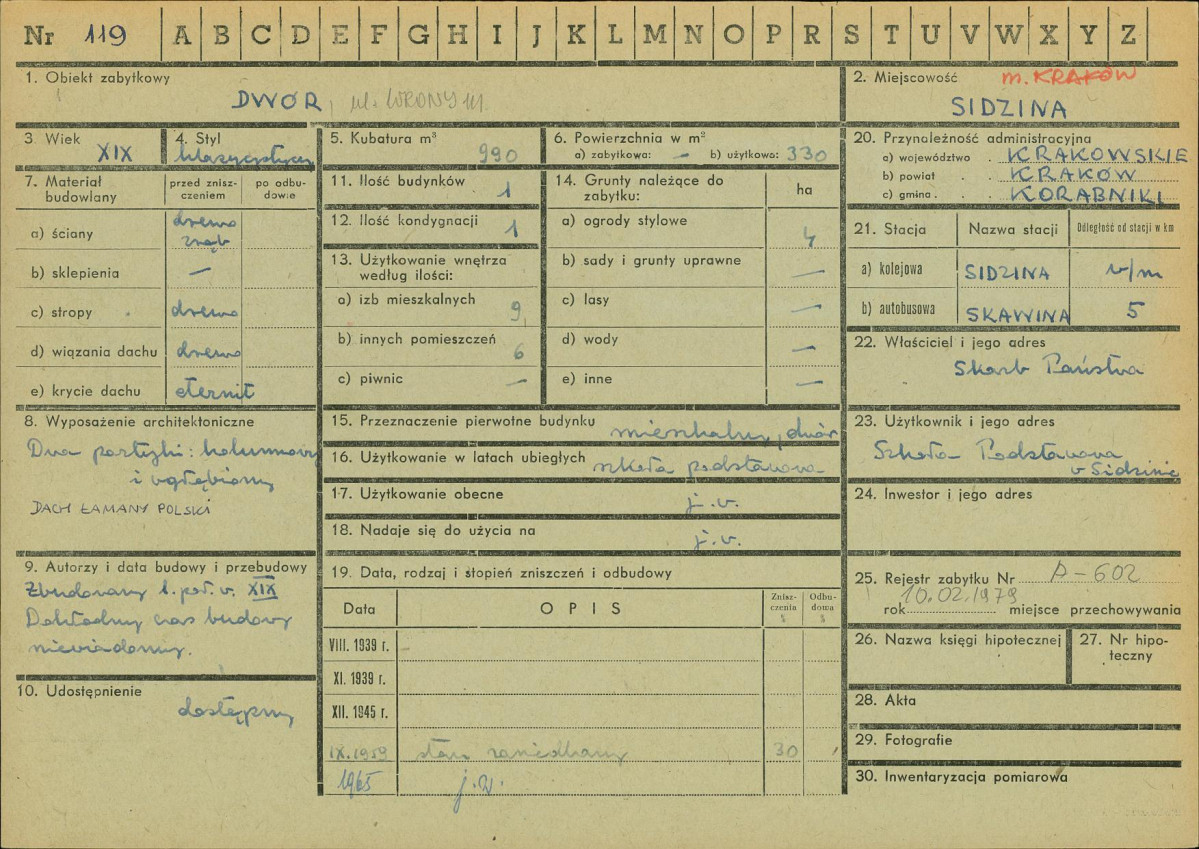 Nr 119 A B C D E F G H I J K L M N O P R S T U V W X Y Z
1. Obiekt zabytkowy
DWÓR, ul. WRONY 111.
2. Miejscowość m. KRAKÓW
SIDZINA
3. Wiek
XIX
4. Styl
klasycystyczny
5. Kubatura m³
990
6. Powierzchnia w m²
a) zabytkowa: — b) użytkowa: 330
20. Przynależność administracyjna
a) województwo . KRAKOWSKIE
b) powiat . . KRAKÓW
c) gmina . . . KORABNIKI
7. Materiał budowlany
przed zniszczeniem
po odbudowie
a) ściany drewno zrąb
b) sklepienia —
c) stropy drewno
d) wiązania dachu drewno
e) krycie dachu eternit
11. Ilość budynków 1
12. Ilość kondygnacji 1
13. Użytkowanie wnętrza
według ilości:
a) izb mieszkalnych 9
b) innych pomieszczeń 6
c) piwnic —
14. Grunty należące do
zabytku: ha
a) ogrody stylowe 4
b) sady i grunty uprawne —
c) lasy —
d) wody —
e) inne —
21. Stacja Nazwa stacji Odległość od stacji w km
a) kolejowa SIDZINA v/m
b) autobusowa SKAWINA 5
22. Właściciel i jego adres
Skarb Państwa
8. Wyposażenie architektoniczne
Dwa portyki: kolumnowy
i wgłębiony
DACH ŁAMANY POLSKI
15. Przeznaczenie pierwotne budynku mieszkalny, dwór
16. Użytkowanie w latach ubiegłych szkoła podstawowa
17. Użytkowanie obecne j.w.
18. Nadaje się do użycia na j.w.
23. Użytkownik i jego adres
Szkoła Podstawowa
w Sidzinie
24. Inwestor i jego adres
9. Autorzy i data budowy i przebudowy
Zbudowany 1. poł. w. XIX
Dokładny czas budowy
niewiadomy.
10. Udostępnienie
dostępny
19. Data, rodzaj i stopień zniszczeń i odbudowy
Data OPIS Zniszczenia % Odbudowa %
VIII. 1939 r.
XI. 1939 r.
XII. 1945 r.
IX.1959 stan zaniedbany 30
1965 j.w.
25. Rejestr zabytku Nr A-602
10.02.1979
rok miejsce przechowywania
26. Nazwa księgi hipotecznej
27. Nr hipoteczny
28. Akta
29. Fotografie
30. Inwentaryzacja pomiarowa